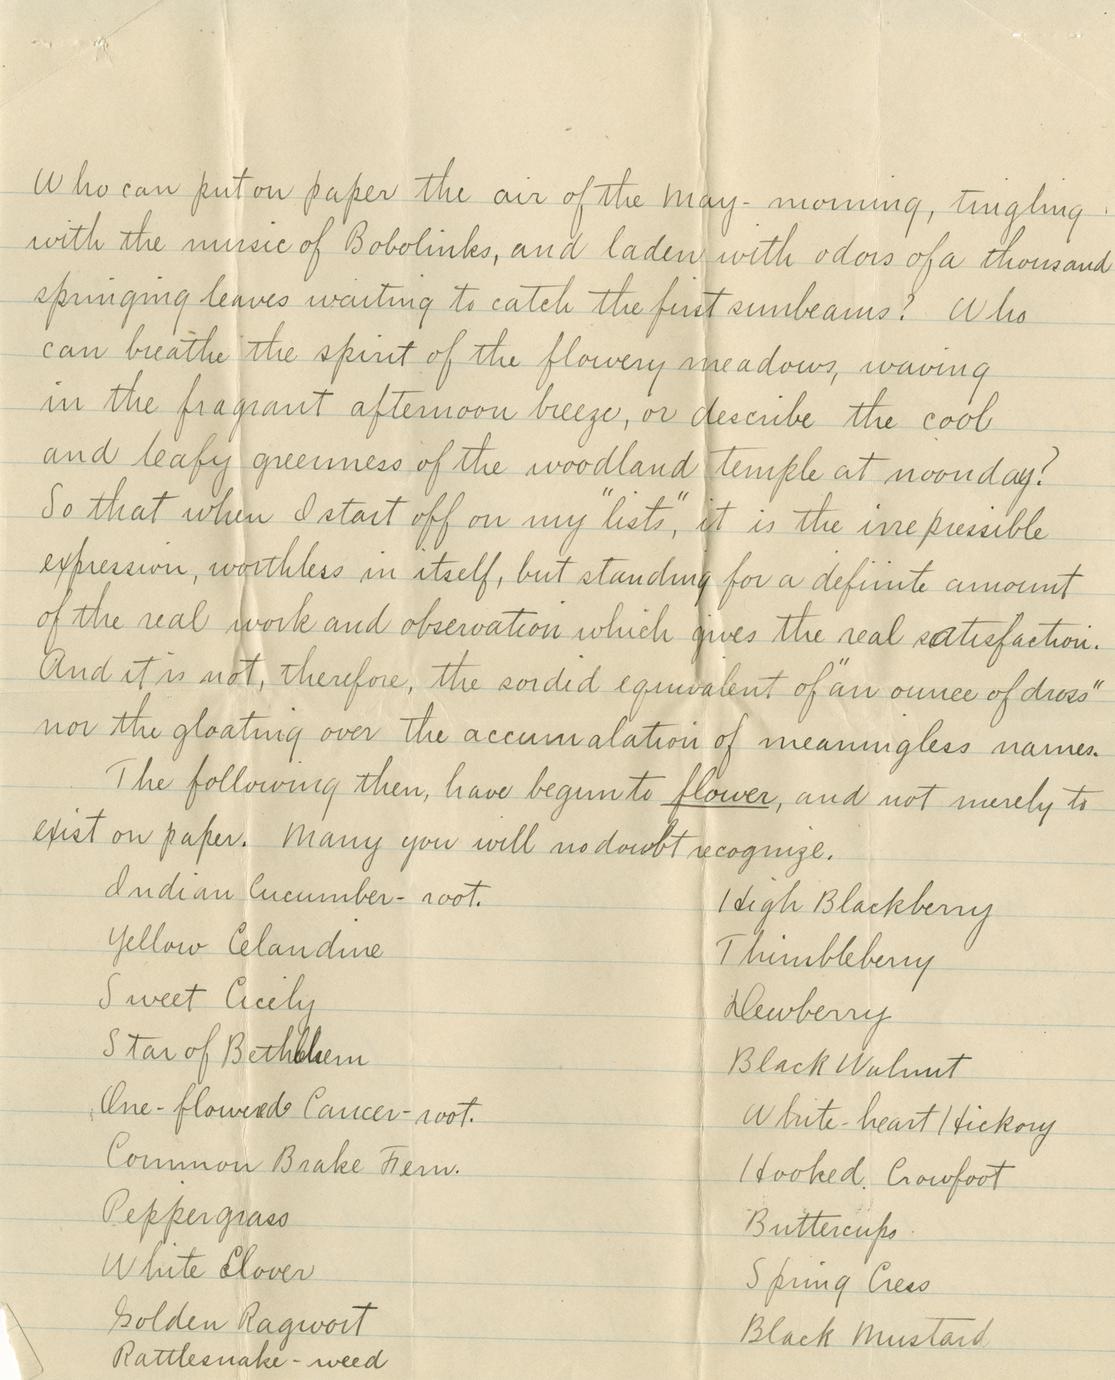 Who can put on paper the air of the May-morning, tingling
with the music of Bobolinks, and laden with odors of a thousand
springing leaves waiting to catch the first sunbeams? Who
can breathe the spirit of the flowery meadows, waving
in the fragrant afternoon breeze, or describe the cool
and leafy greenness of the woodland temple at noonday?
So that when I start off on my "lists", it is the irrepressible
expression, worthless in itself, but standing for a definite amount
of the real work and observation which gives the real satisfaction.
And it is not, therefore, the sordid equivalent of "an ounce of dross"
nor the gloating over the accumalation of meaningless names.
The following then, have begun to flower, and not merely to
exist on paper. Many you will no doubt recognize.
Indian Cucumber-root.
Yellow Celandine
Sweet Cicily
Star of Bethlehem
One-flowered Cancer-root.
Common Brake Fern.
Peppergrass
White Clover
Golden Ragwort
Rattlesnake-weed
High Blackberry
Thimbleberry
Dewberry
Black Walnut
White-heart Hickory
Hooked Crowfoot
Buttercups
Spring Cress
Black Mustard